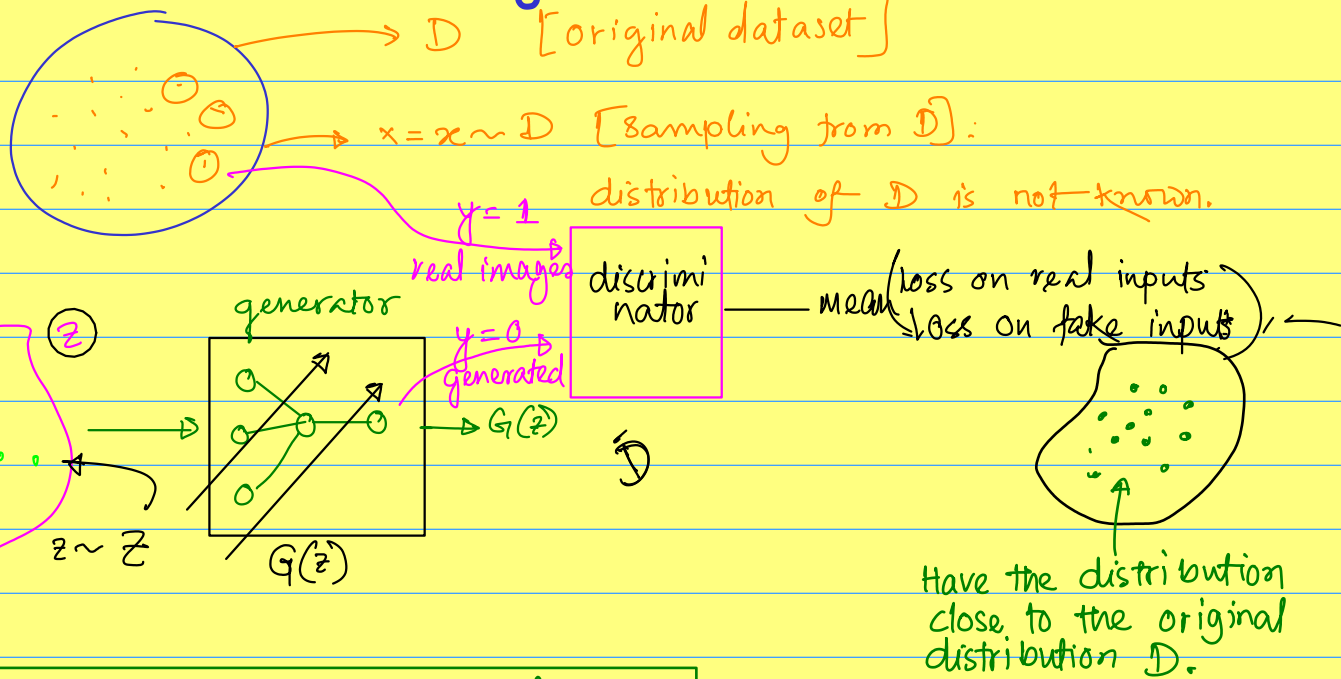 D [original dataset]
x = x ~ D [sampling from D].
distribution of D is not known.
y = 1
real images
discrimi
nator
mean (loss on real inputs
loss on fake inputs),
generator
z
y = 0
generated
G(z)
D
z ~ Z
G(z)
Have the distribution
close to the original
distribution D.